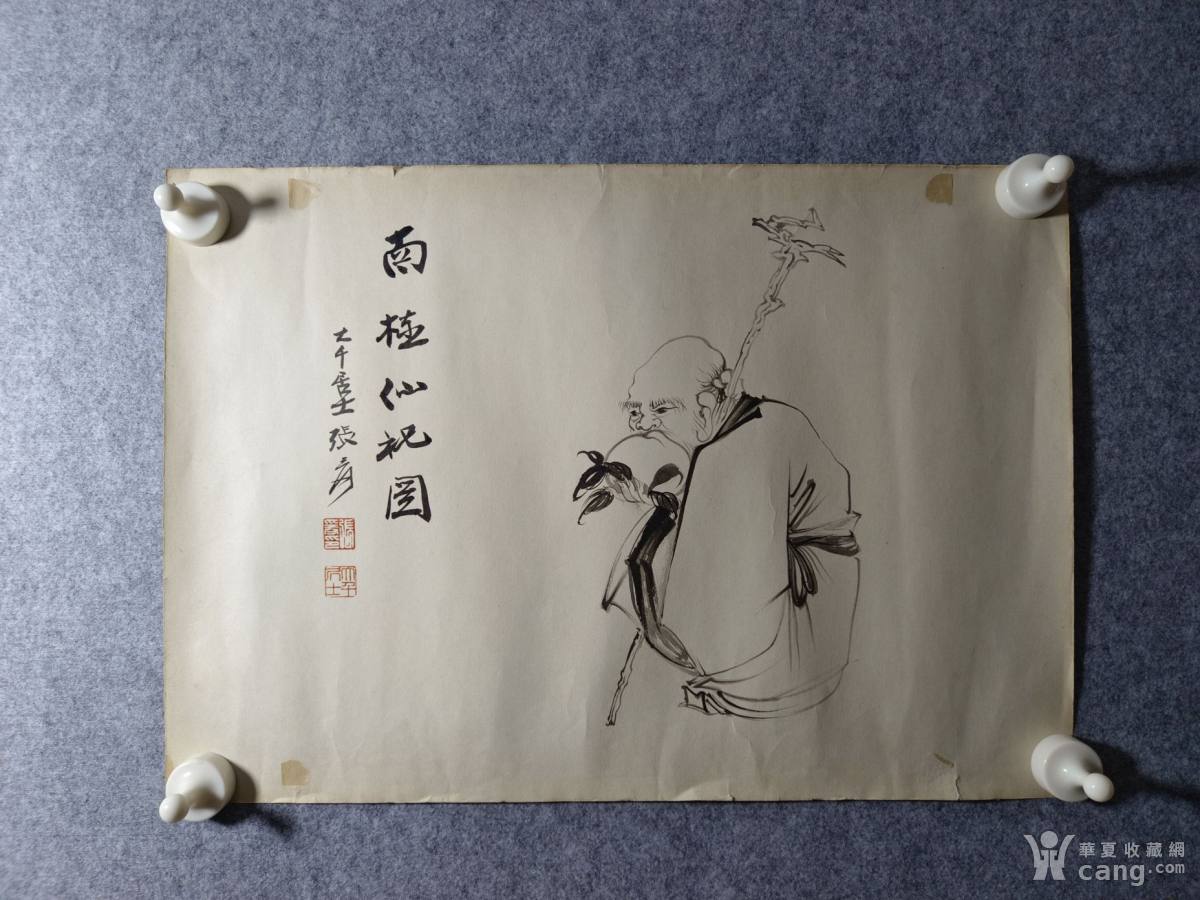 南極仙祝图
大千居士張爰
大千居士
華夏收藏網
cang.com